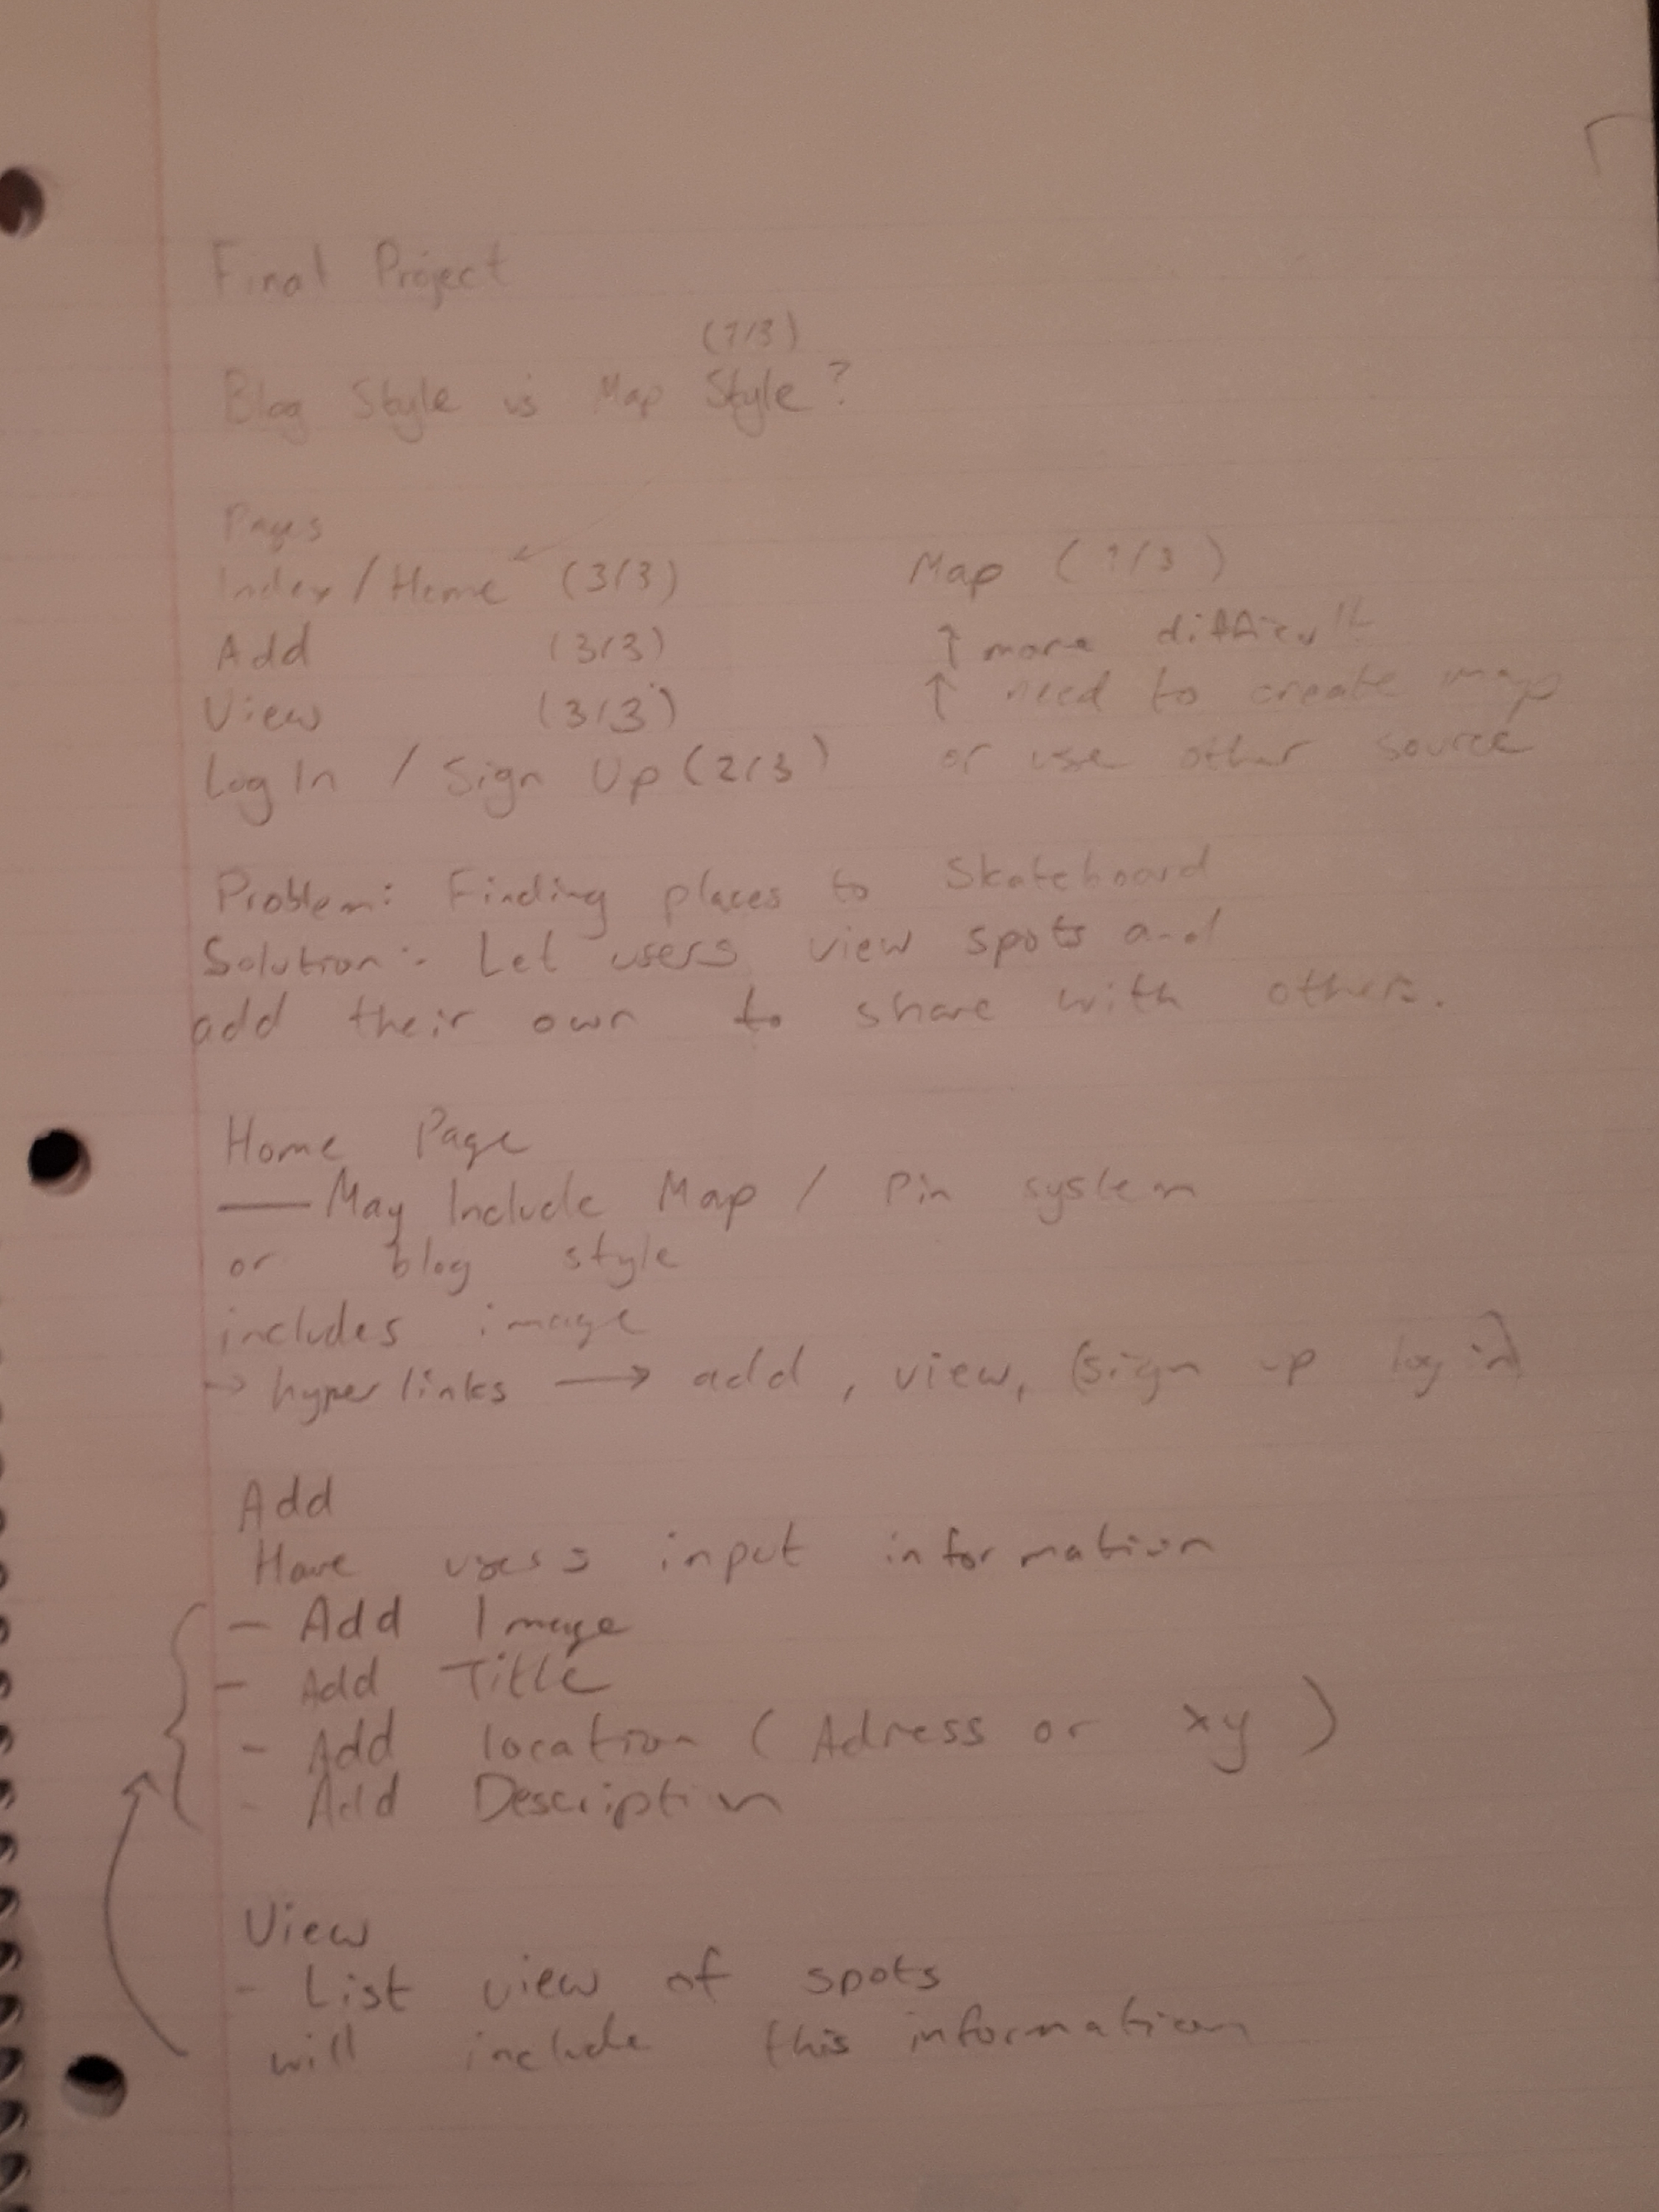 Final Project
(?/3)
Blog Style vs Map Style?
Pages
Index / Home (3/3)
Add (3/3)
View (3/3)
Log In / Sign Up (2/3)
Map (?/3)
↑ more difficult
↑ need to create map
or use other source
Problem: Finding places to Skateboard
Solution: Let users view spots and
add their own to share with others.
Home Page
— May Include Map / Pin system
or blog style
includes image
-> hyperlinks -> add, view, (sign up log in)
Add
Have users input information
- Add Image
- Add Title
- Add location (Adress or xy)
- Add Description
View
- List view of spots
will include this information